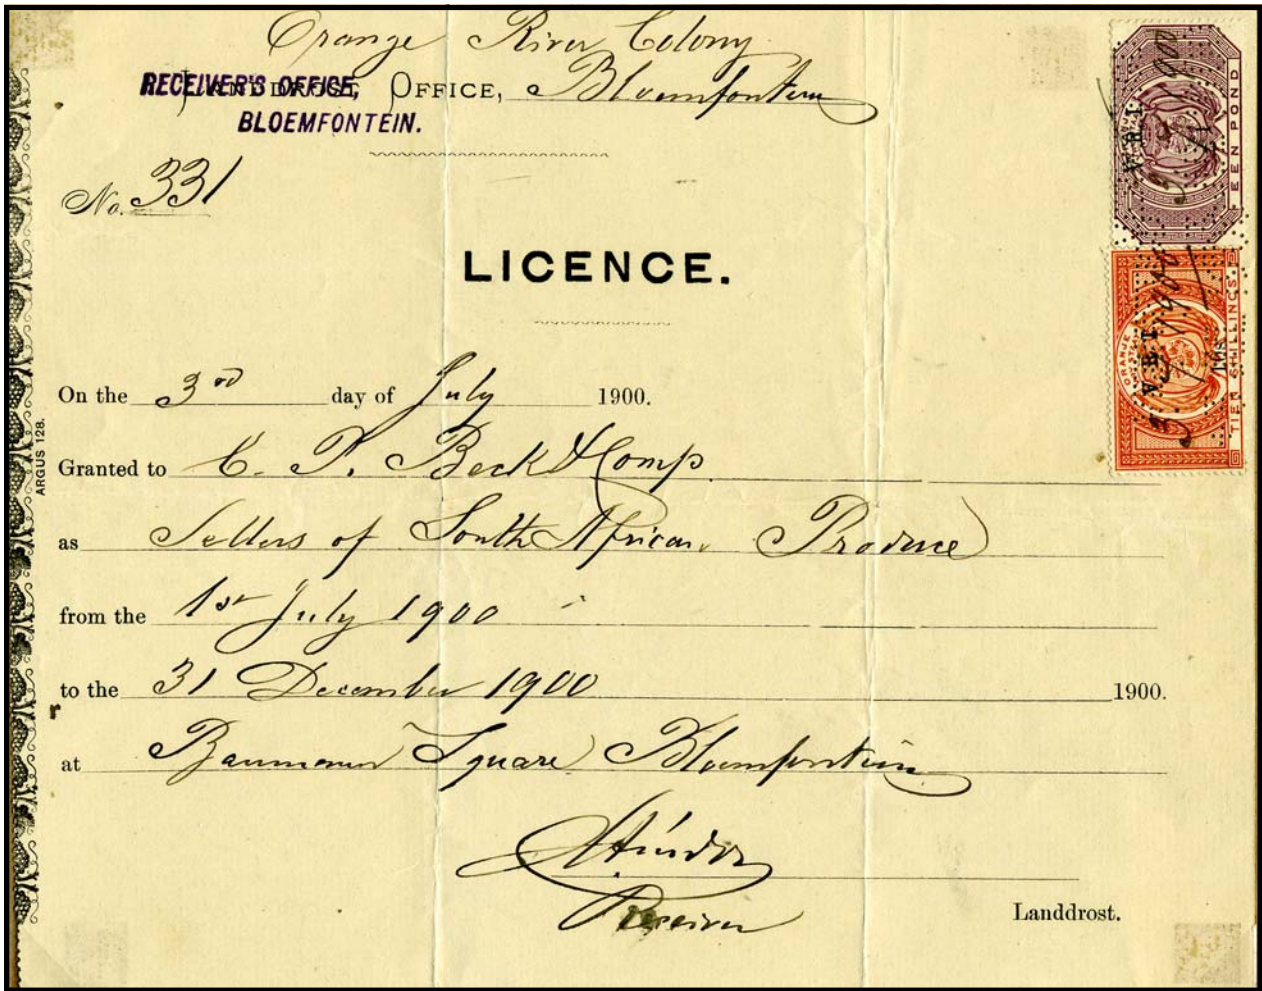 Orange River Colony
LANDDROST OFFICE, Bloemfontein
RECEIVER'S OFFICE,
BLOEMFONTEIN.
No. 331
LICENCE.
On the 3rd day of July 1900.
Granted to C. P. Beck & Comp
as Sellers of South African Produce
from the 1st July 1900
to the 31 December 1900 1900.
at Baumann Square Bloemfontein
Receiver
Landdrost.
ARGUS 128.
V.R.I.
£1
EEN POND
3/7/1900
ORANJE
V.R.I.
10s
TIEN SHILLINGS.
3/7/1900